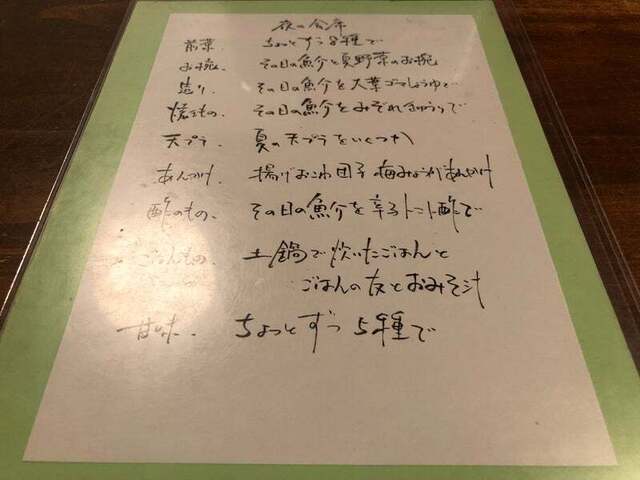 夜の会席
前菜. ちょっとずつ8種で
お椀. その日の魚介と夏野菜のお椀
造り. その日の魚介を大葉ゴマしょうゆで
焼きもの. その日の魚介をみぞれきゅうりで
天プラ. 夏の天プラをいくつか
あんかけ. 揚げおこわ団子の梅みょうがあんかけ
酢のもの. その日の魚介を辛子トマト酢で
ごはんもの. 土鍋で炊いたごはんと
ごはんの友とおみそ汁
甘味. ちょっとずつ5種で